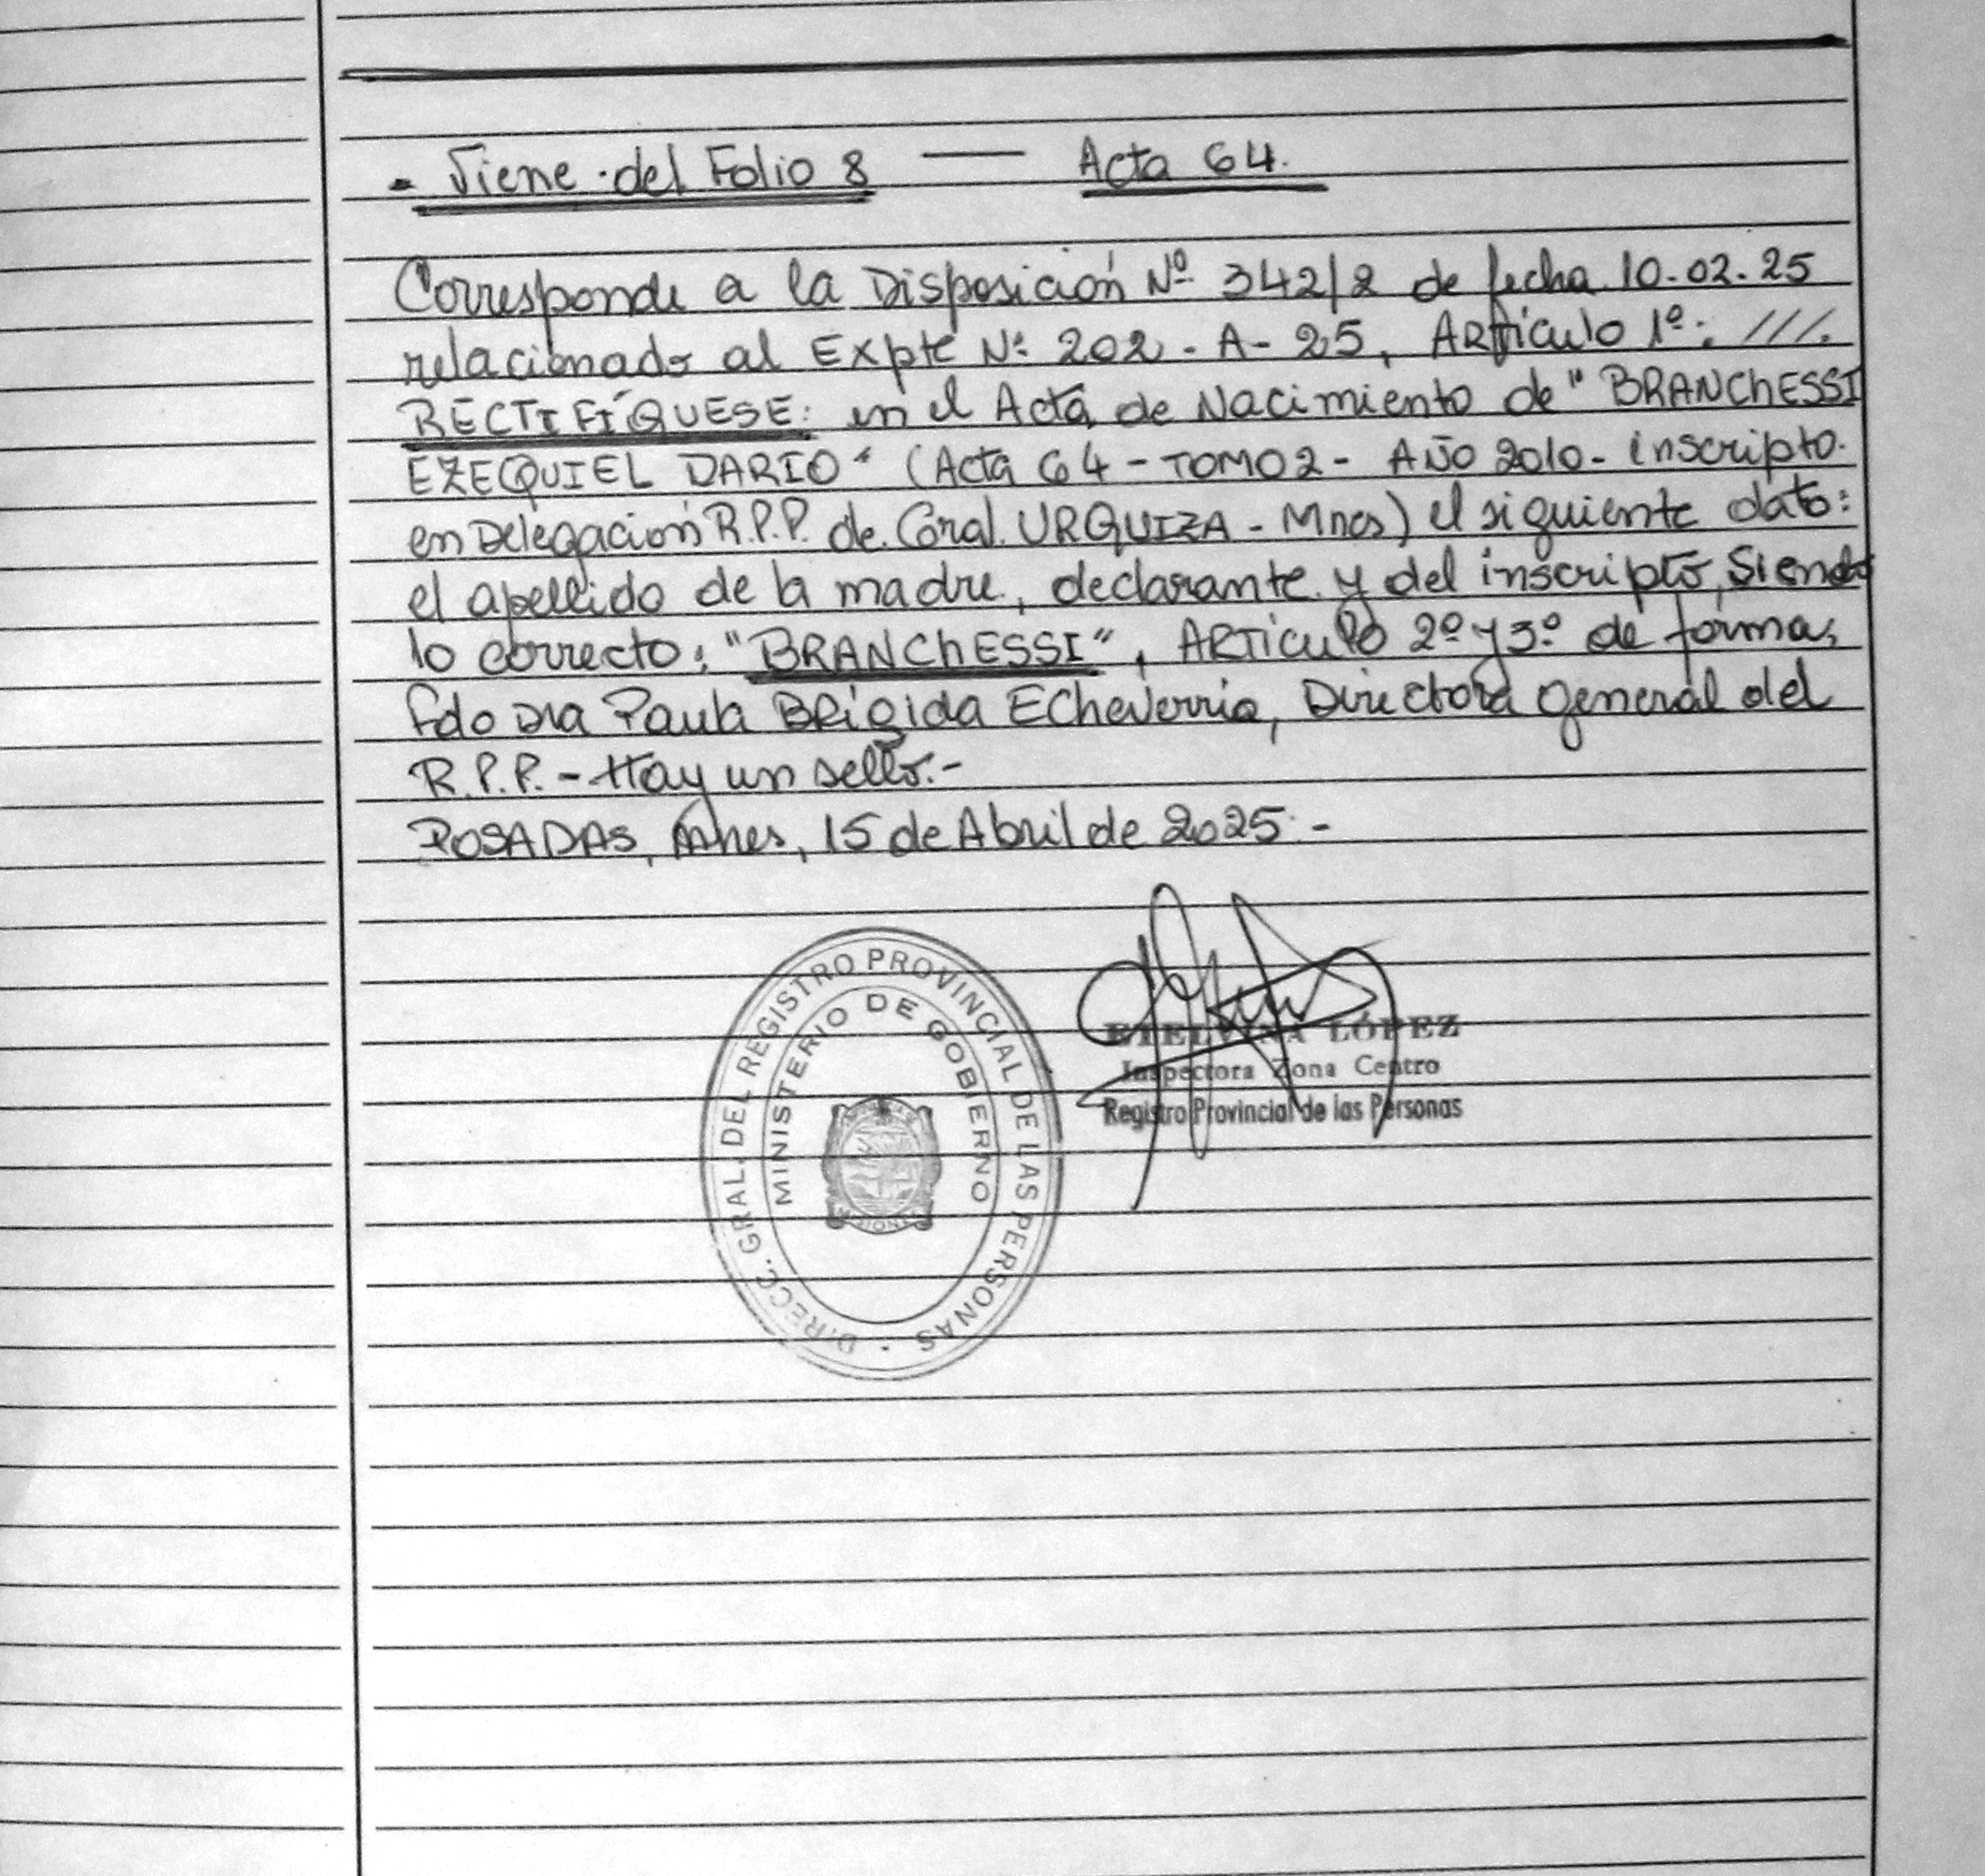 - Viene del Folio 8 — Acta 64.
Corresponde a la Disposición Nº 342/2 de fecha 10-02-25
relacionado al Expte Nº 202 - A - 25, ARTículo 1º: ///.
RECTIFÍQUESE: en el Acta de Nacimiento de "BRANChESSI
EZEQUIEL DARIO" (Acta 64 - TOMO 2 - AÑO 2010 - inscripto.
en Delegación R.P.P. de Gral. URQUIZA - Mnes) el siguiente dato:
el apellido de la madre, declarante y del inscripto, Siendo
lo correcto: "BRANChESSI", ARTículo 2º y 3º de forma,
fdo Dra Paula BRígida Echeverria, Directora General del
R.P.P. - Hay un sello.-
POSADAS, Mnes, 15 de Abril de 2025.-
DIRECC. GRAL. DEL REGISTRO PROVINCIAL DE LAS PERSONAS
MINISTERIO DE GOBIERNO
ETELVINA LÓPEZ
Inspectora Zona Centro
Registro Provincial de las Personas